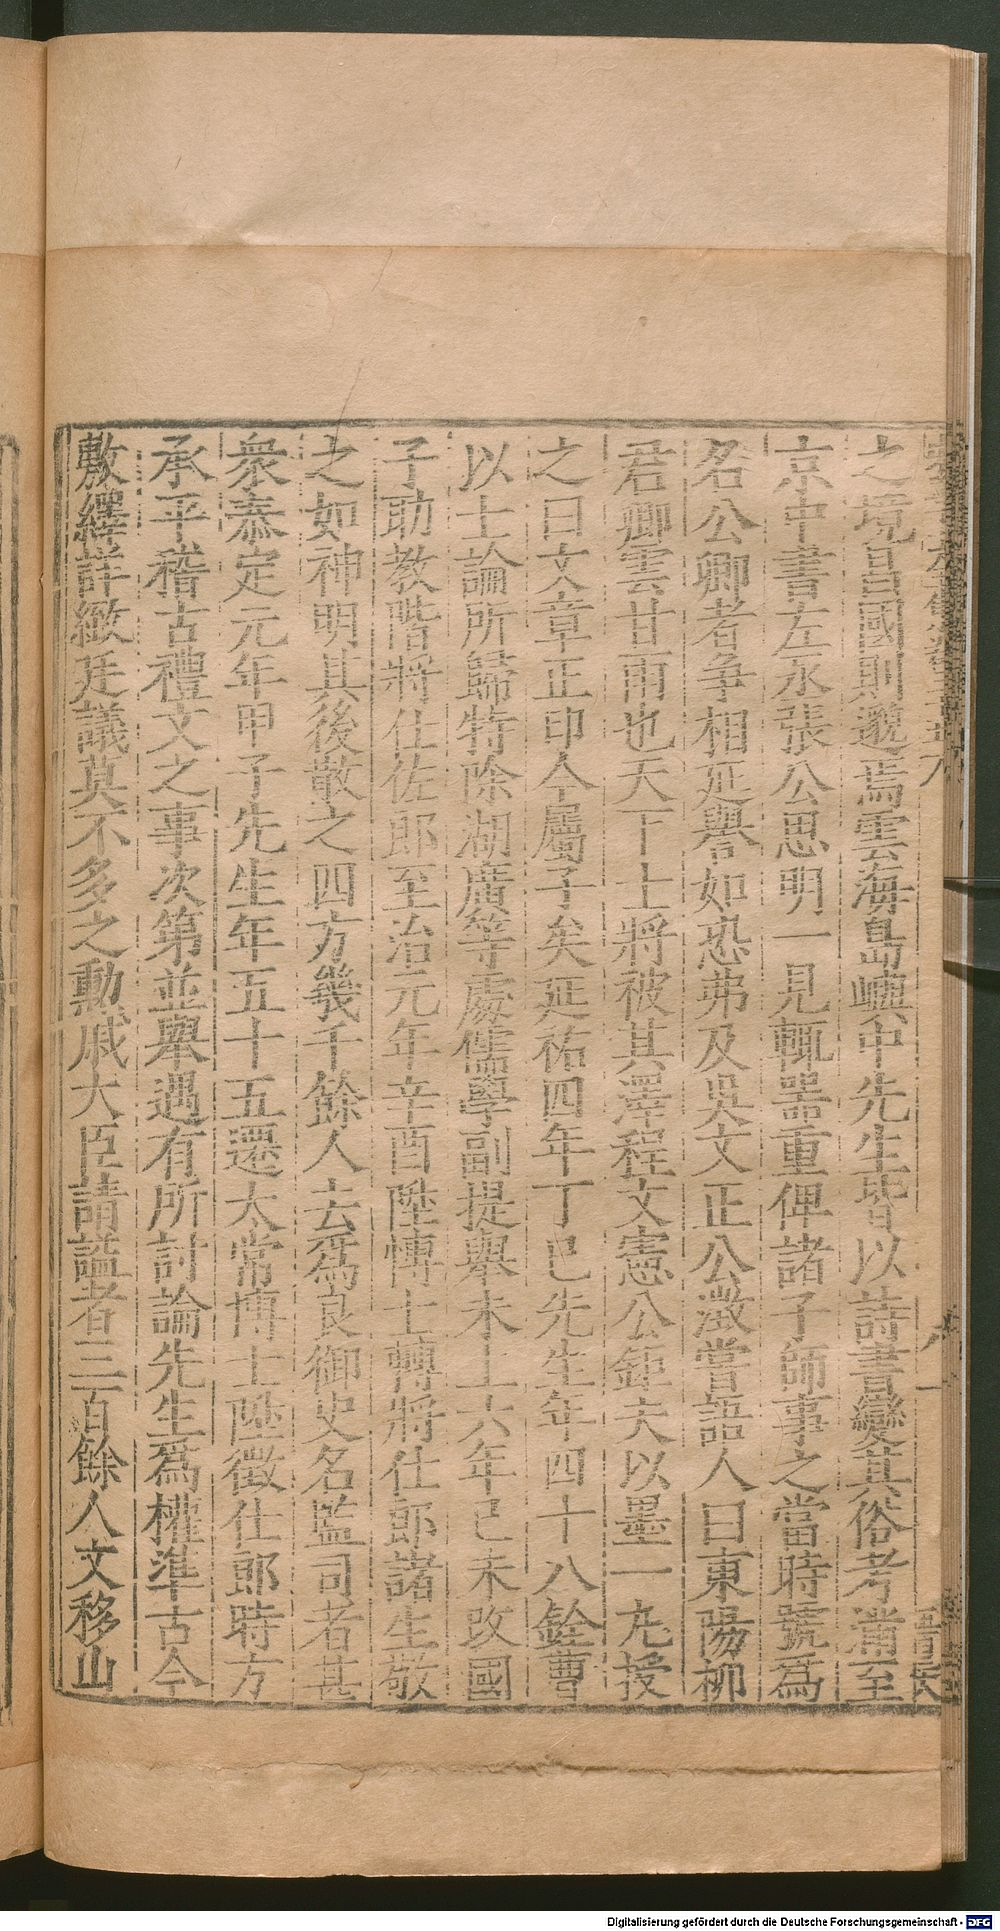 之境昌國則邈焉雲海島嶼中先生皆以詩書變其俗考滿至
京中書左丞張公思明一見輒器重俾諸子師事之當時號為
名公卿者争相延譽如恐弗及吳文正公澂嘗語人曰東陽柳
君卿雲甘雨也天下士將被其澤程文憲公鉅夫以墨一丸授
之曰文章正印今屬子矣延祐四年丁巳先生年四十八銓曹
以士論所歸特除湖廣等處儒學副提舉未上六年己未改國
子助教階將仕佐郎至治元年辛酉陞博士轉將仕郎諸生敬
之如神明其後散之四方幾千餘人去爲良御史名監司者甚
衆泰定元年甲子先生年五十五還大常博士陞徵仕郎時方
承平稽古禮文之事次第並舉遇有所討論先生爲權準古今
敷繹詳緻廷議莫不多之勳戚大臣請謚者三百餘人文移山
Digitalisierung gefördert durch die Deutsche Forschungsgemeinschaft - DFG